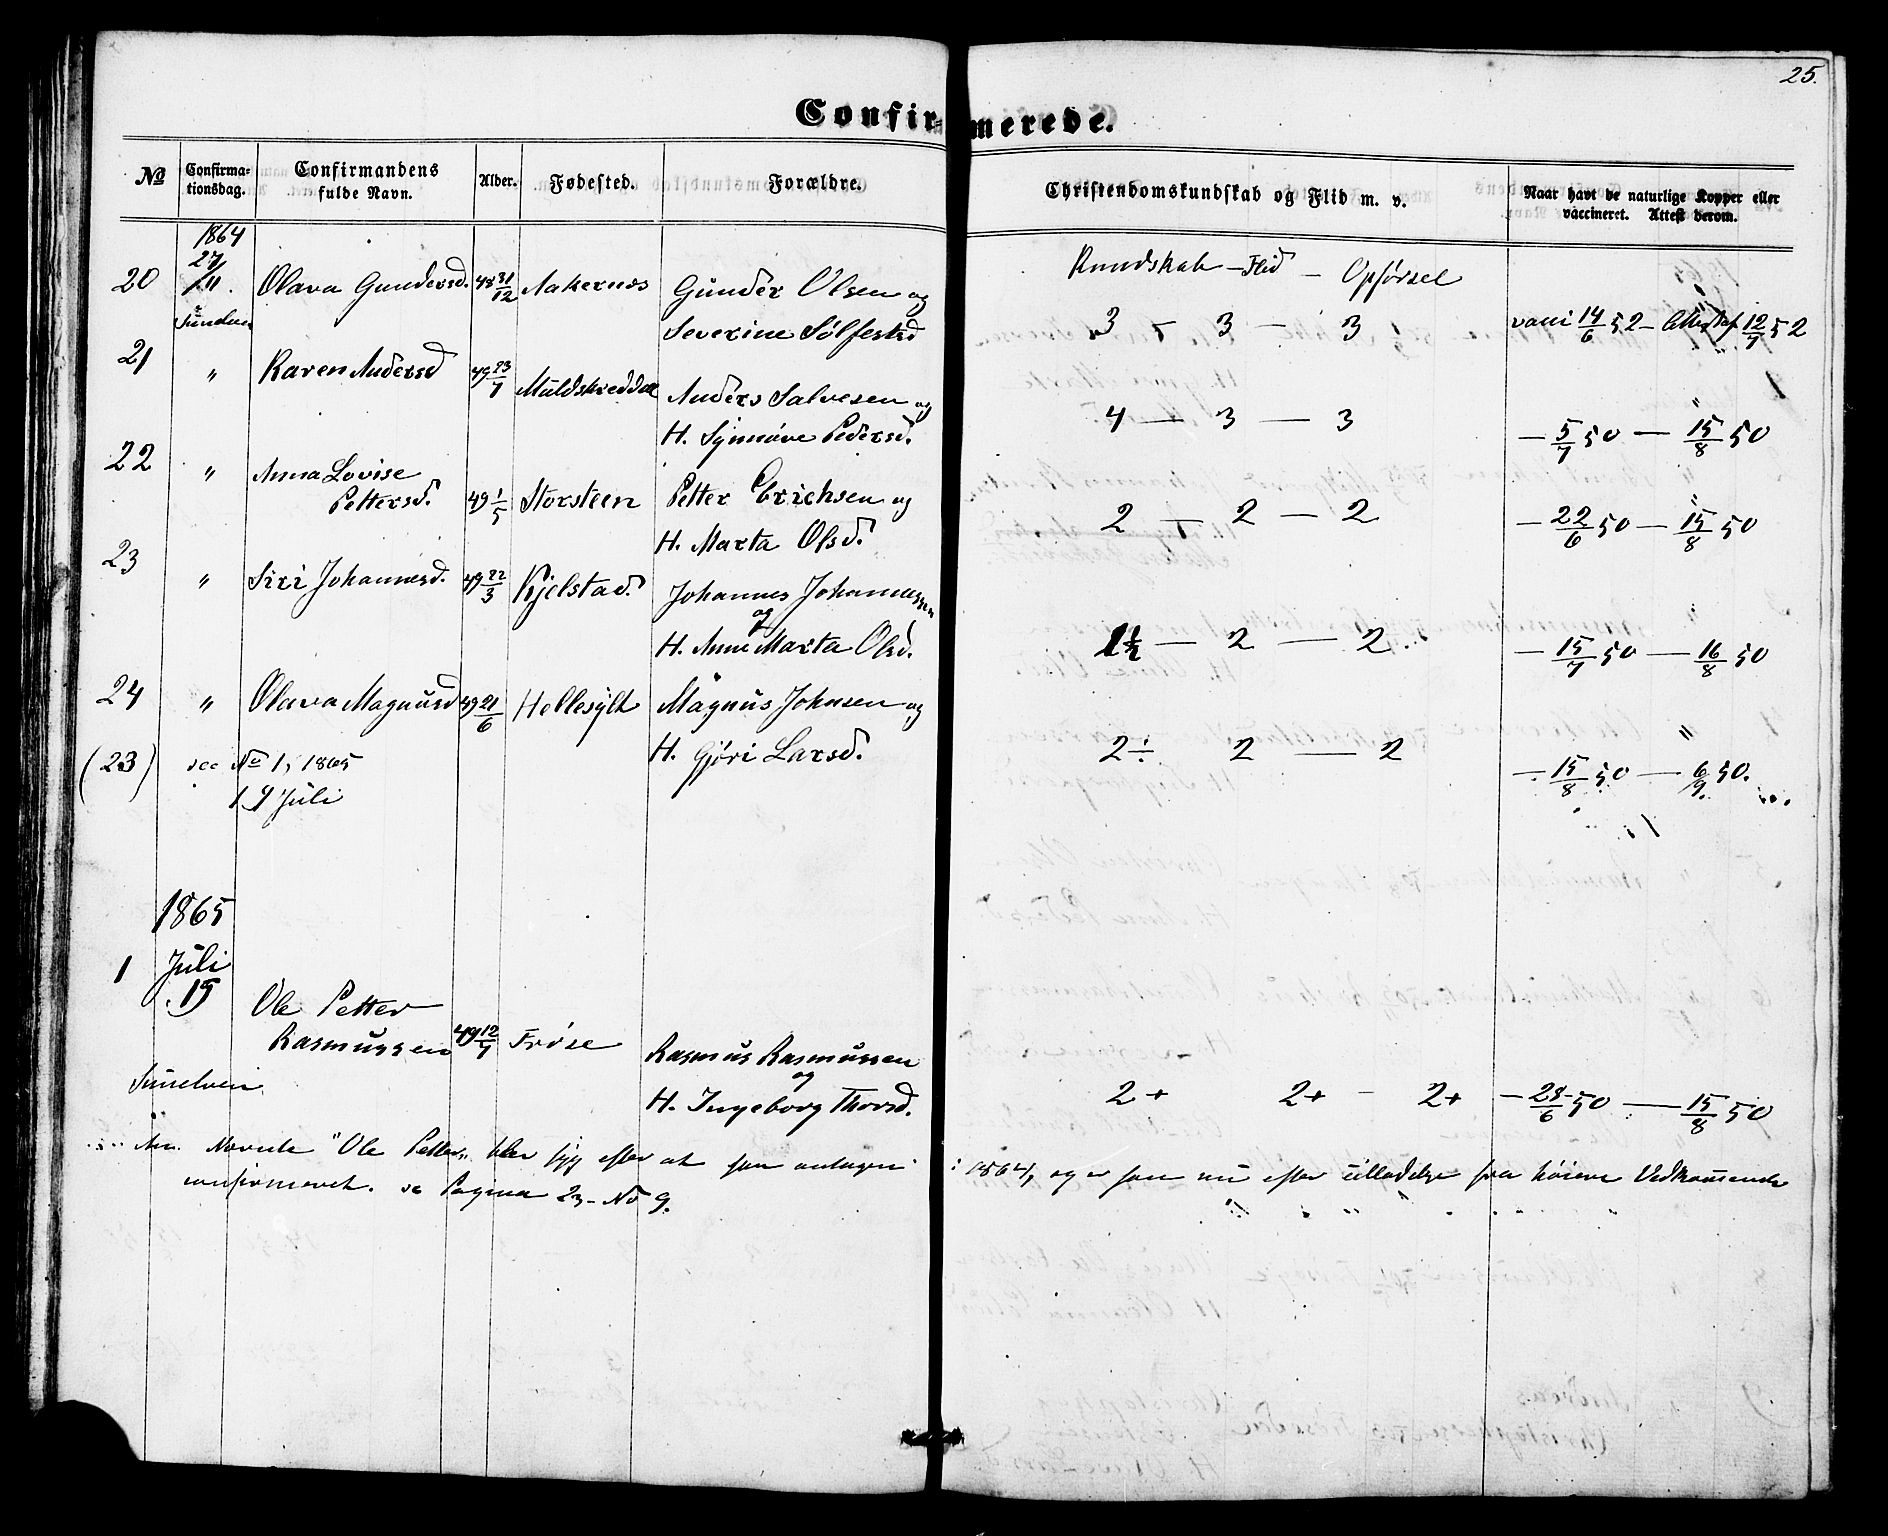 25.
Confirmerede.
№ Confirmationsdag. Confirmandens fulde Navn. Alder. Fødested. Forældre. Christendomskundskab og Flid m. v. Naar havt de naturlige Kopper eller vaccineret. Attest derom.
1864
27/11. Kundskab – Flid – Opførsel
20 Olava Gundersd. 48 31/12 Aakernes Gunder Olsen og
Severine Sølfestsd 3 – 3 – 3 vacci 14/6 52 – Attest af 12/7 52
21 " Karen Andersd 49 23/7 Muldskreddal Anders Salvesen og
H. Synnøve Pedersd. 4 – 3 – 3 – 5/7 50 – 15/8 50
22 " Anna Lovise
Pettersd. 49 1/5 Storsteen Petter Erichsen og
H. Marta Olsd. 2 – 2 – 2 – 22/6 50 – 15/8 50
23 " Siri Johannesd. 49 22/3 Kjelstad. Johannes Johannessen
og
H. Anne Marta Olsd. 1½ – 2 – 2. – 15/7 50 – 16/8 50
24 " Olava Magnusd 49 21/6 Hellesylt Magnus Johnsen og
H. Gjøri Larsd. 2÷ 2 – 2 – 15/8 50 – 6/9 50.
(23) see No 1, 1865
19 Juli
1865
1 Juli
19
Ole Petter
Rasmussen 49 12/7 Frøse Rasmus Rasmussen
og
Sunelven H. Ingeborg Thorsd. 2+ 2+ – 2+ – 28/6 50 – 15/8 50
An. Nævnte "Ole Petter" blev syg efter at han antagen i 1864, og er han nu efter tilladelse fra høiere Vedkommende
confirmeret. se Pagina 23 – No 9.